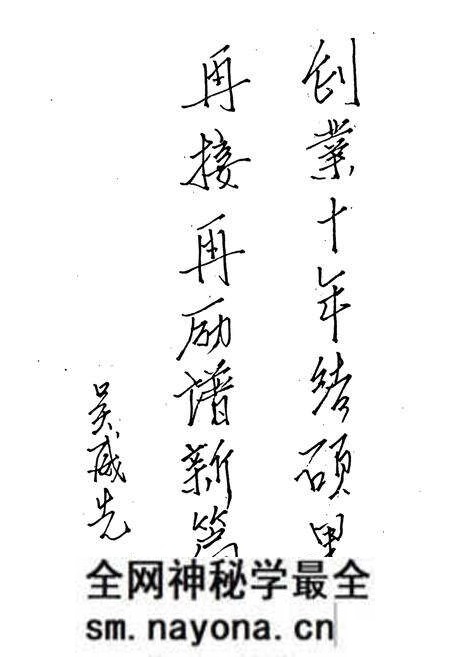 创業十年结硕果
再接再励谱新篇
吴威先
全网神秘学最全
sm.nayona.cn